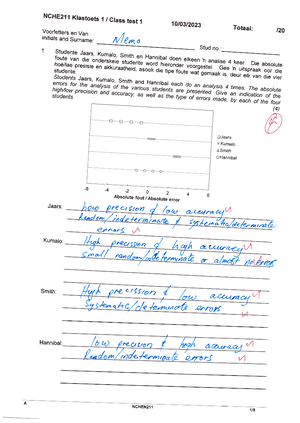 NCHE211 Klastoets 1 / Class test 1
10/03/2023
Totaal: /20
Voorletters en Van:
Initials and Surname: Memo
Stud.no:
1. Studente Jaars, Kumalo, Smith en Hannibal doen elkeen 'n analise 4 keer. Die absolute
foute van die onderskeie studente word hieronder voorgestel. Gee 'n uitspraak oor die
hoë/lae presisie en akkuraatheid, asook die tipe foute wat gemaak is, deur elk van die vier
studente.
Students Jaars, Kumalo, Smith and Hannibal each do an analysis 4 times. The absolute
errors for the analysis of the various students are presented. Give an indication of the
high/low precision and accuracy, as well as the type of errors made, by each of the four
students.
(4)
Jaars
Kumalo
Smith
Hannibal
-6 -4 -2 0 2 4 6
Absolute fout / Absolute error
Jaars: Low precision & low accuracy
Random/indeterminate & systematic/determinate
errors
Kumalo: High precision & high accuracy
small random/indeterminate or almost no errors
Smith: High precission & low accuracy
Systematic/determinate errors
Hannibal: low precision & high accuracy
Random/indeterminate errors
NCHE211
1/8